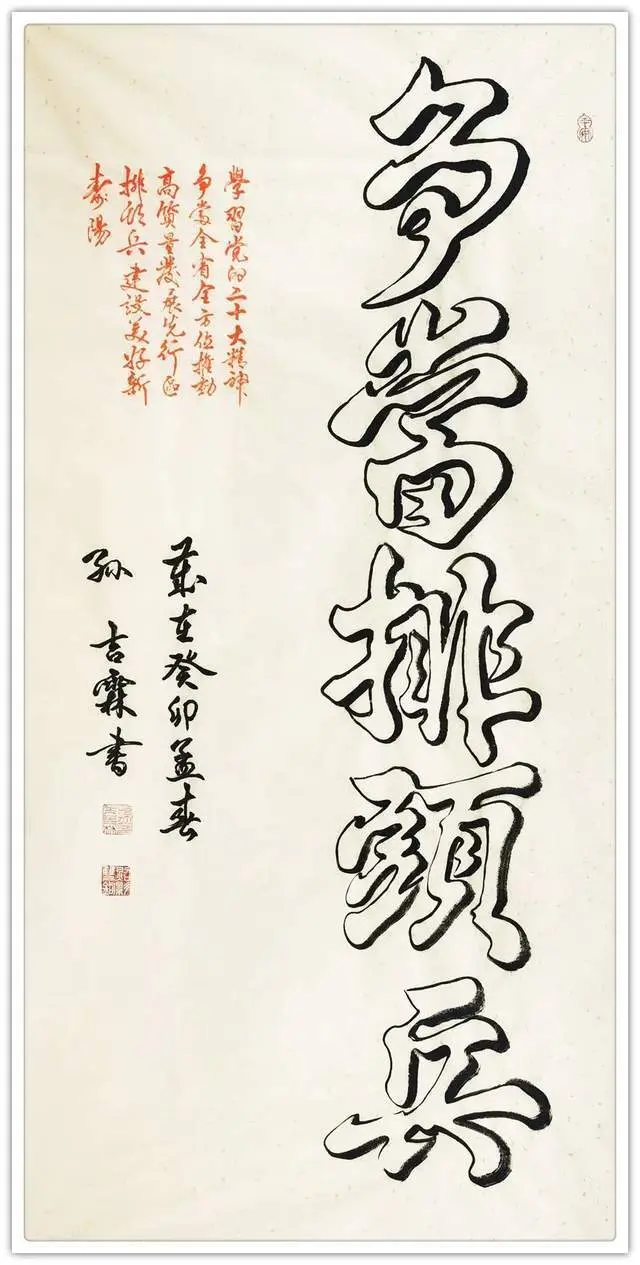 争當排頭兵
學習党的二十大精神
争當全省全方位推動
高质量發展先行區
排頭兵建設美好新
壽陽
歲在癸卯孟春
孫吉霖書